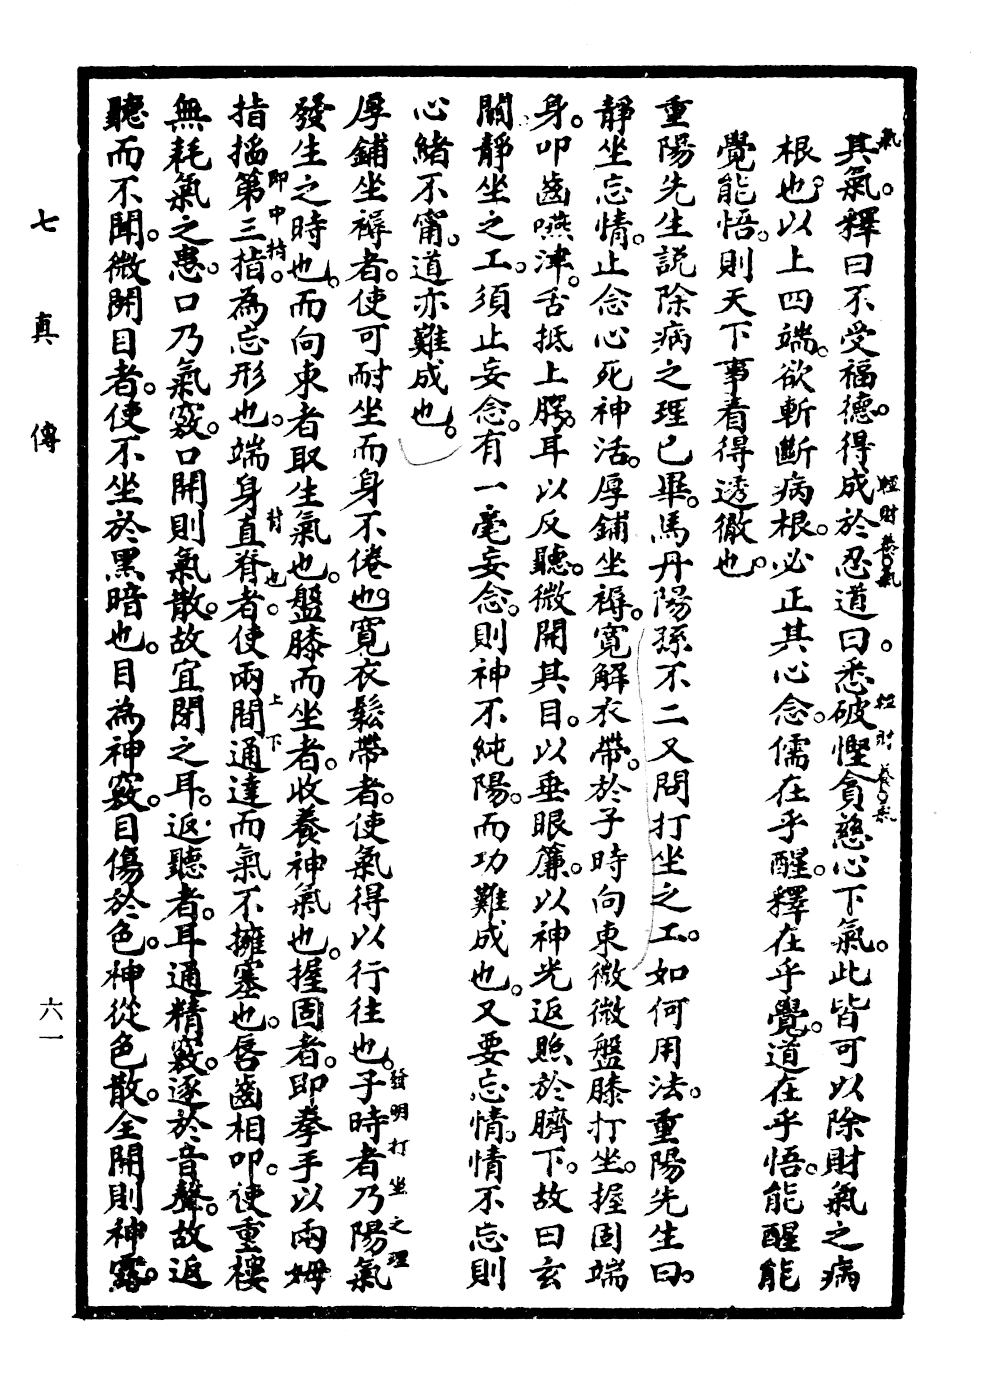 其氣。釋曰不受福德。得成於忍道曰。悉破慳貪慈心下氣。此皆可以除財氣之病
氣
輕財養氣
輕財養氣
根也。以上四端。欲斬斷病根。必正其心念。儒在乎醒。釋在乎覺。道在乎悟。能醒能
覺能悟。則天下事看得透徹也。
重陽先生説除病之理已畢。馬丹陽孫不二又問打坐之工。如何用法。重陽先生曰。
靜坐忘情。止念心死神活。厚鋪坐褥。寬解衣帶。於子時向東微微盤膝打坐。握固端
身。叩齒嚥津。舌抵上腭。耳以反聽。微開其目。以垂眼簾。以神光返照於臍下。故曰玄
關靜坐之工。須止妄念。有一毫妄念。則神不純陽。而功難成也。又要忘情。情不忘則
心緒不甯。道亦難成也。
厚鋪坐褥者。使可耐坐而身不倦也。寬衣鬆帶者。使氣得以行往也。子時者乃陽氣
發明打坐之理
發生之時也。而向東者取生氣也。盤膝而坐者。收養神氣也。握固者。即拳手以兩姆
指掐第三指。為忘形也。端身直脊者。使兩間通達而氣不擁塞也。唇齒相叩。使重樓
即中指
背也
上下
無耗氣之患。口乃氣竅。口開則氣散。故宜閉之耳。返聽者。耳通精竅。逐於音聲。故返
聽而不聞。微開目者。使不坐於黑暗也。目為神竅。目傷於色。神從色散。全開則神露。
七真傳
六一